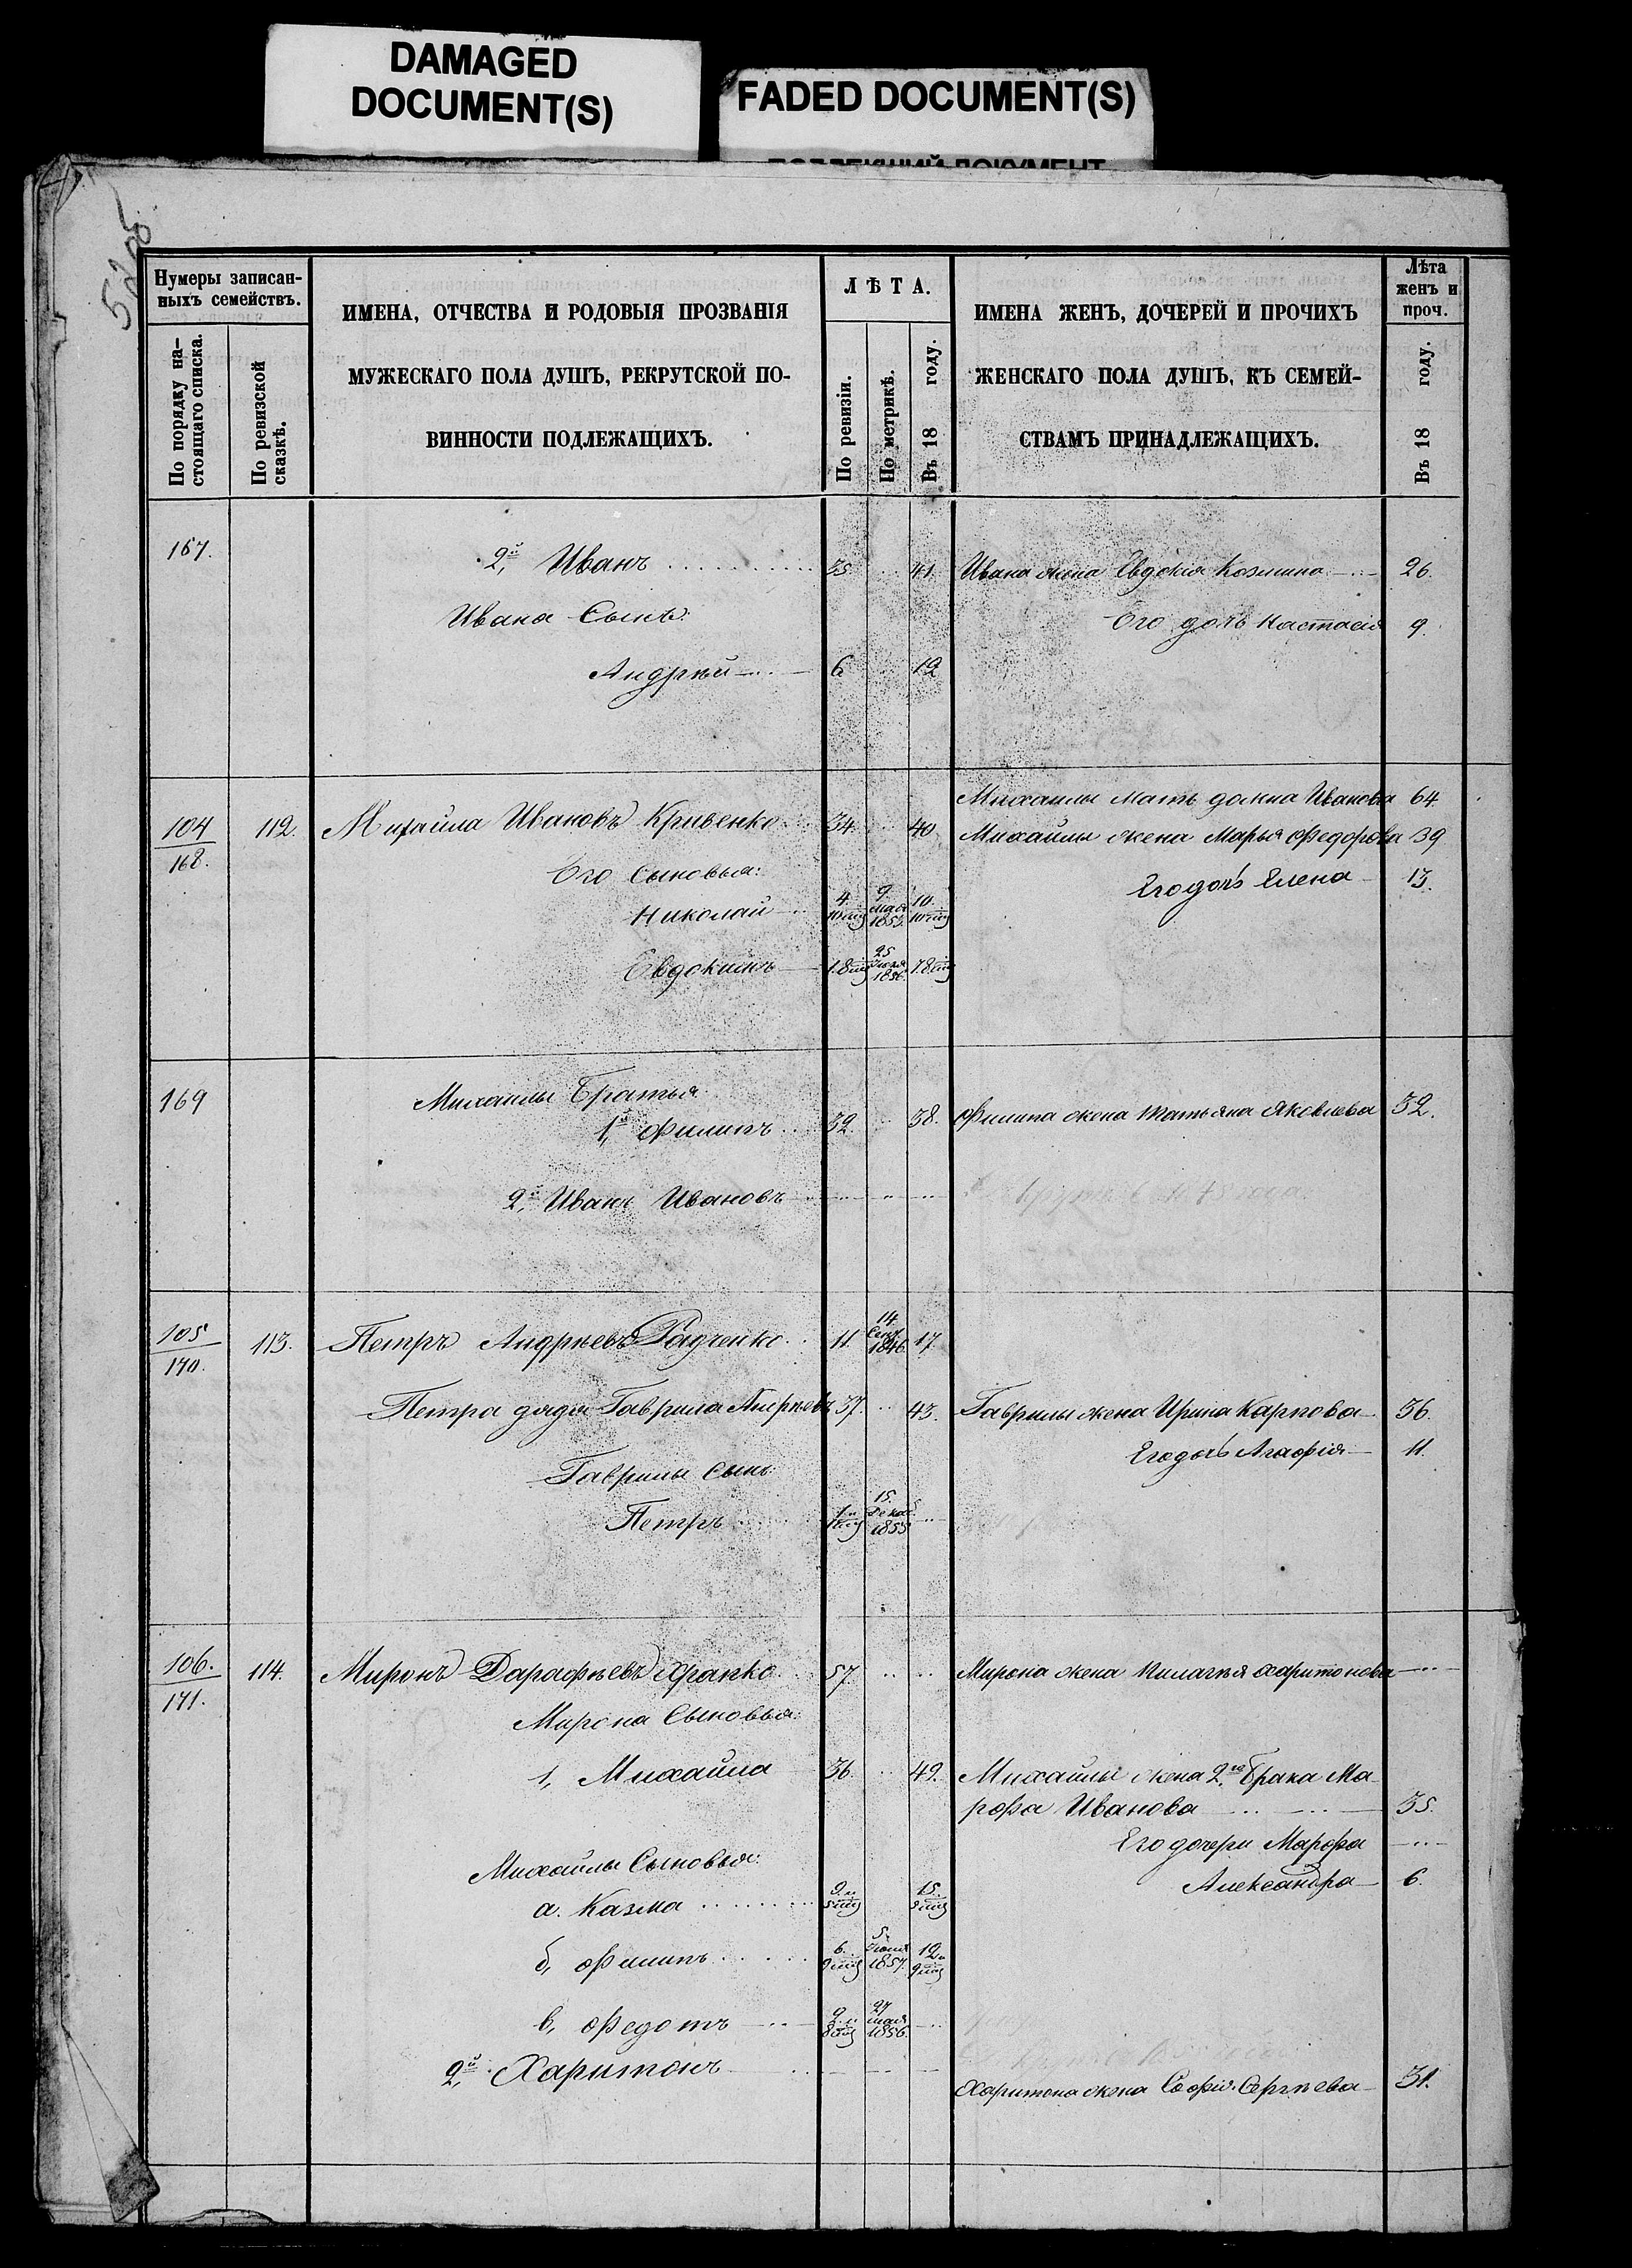 DAMAGED
DOCUMENT(S)
FADED DOCUMENT(S)
Нумеры записан-
ныхъ семействъ.
По порядку на-
стоящаго списка.
По ревизской
сказкѣ.
ИМЕНА, ОТЧЕСТВА И РОДОВЫЯ ПРОЗВАНІЯ
МУЖЕСКАГО ПОЛА ДУШЪ, РЕКРУТСКОЙ ПО-
ВИННОСТИ ПОДЛЕЖАЩИХЪ.
ЛѢТА.
По ревизіи.
По метрикѣ.
Въ 18 году.
ИМЕНА ЖЕНЪ, ДОЧЕРЕЙ И ПРОЧИХЪ
ЖЕНСКАГО ПОЛА ДУШЪ, КЪ СЕМЕЙ-
СТВАМЪ ПРИНАДЛЕЖАЩИХЪ.
Лѣта
женъ и
проч.
Въ 18 году.
167. 2й, Иванъ 35 41. Ивана жена Евдокія Козмина 26.
Ивана Сынъ: Его дочь Настасія 9.
Андрѣй 6 12
Михаилы мать домна Иванова 64
104 112. Михайла Ивановъ Кривенко 34. 40. Михайлы жена Марья Федорова 39
168. Его Сыновья: Его дочь Елена 13.
Николай 4. 10 мцъ 9 мая 1853. 10. 10 мцъ
Евдокимъ 1.8 мцъ 25 1856. 7.8 мцъ
169 Михаилы Братья
1й, Филипъ 32. 38. Филипа жена Татьяна Яковлева 32.
2й, Иванъ Ивановъ
105 113. Петръ Андрѣевъ Радченко 11. 14 Сент. 1846. 17.
170.
Петра дядя Гаврила Андрѣевъ 37. 43. Гаврилы жена Ирина Карпова 36.
Гаврилы Сынъ Его дочь Агафія 11.
Петръ 15. Декаб. 1855
106. 114. Миронъ Дарофѣевъ Храпко 57. Мирона жена Пилагѣя Харитонова
171. Мирона Сыновья:
1, Михайла 36. 49. Михайлы жена 2го Брака Ма-
рфа Иванова 35.
Его дочери Марфа
Михайлы Сыновья: Александра 6.
а. Казма 9. 5 мцъ 15. 9 мцъ
б, Филипъ 6. 9 мцъ 5 1857. 12. 9 мцъ
в, Федотъ 2. 8 мцъ 27 мая 1856.
2й, Харитонъ
Харитона жена Софія Сергѣева 31.